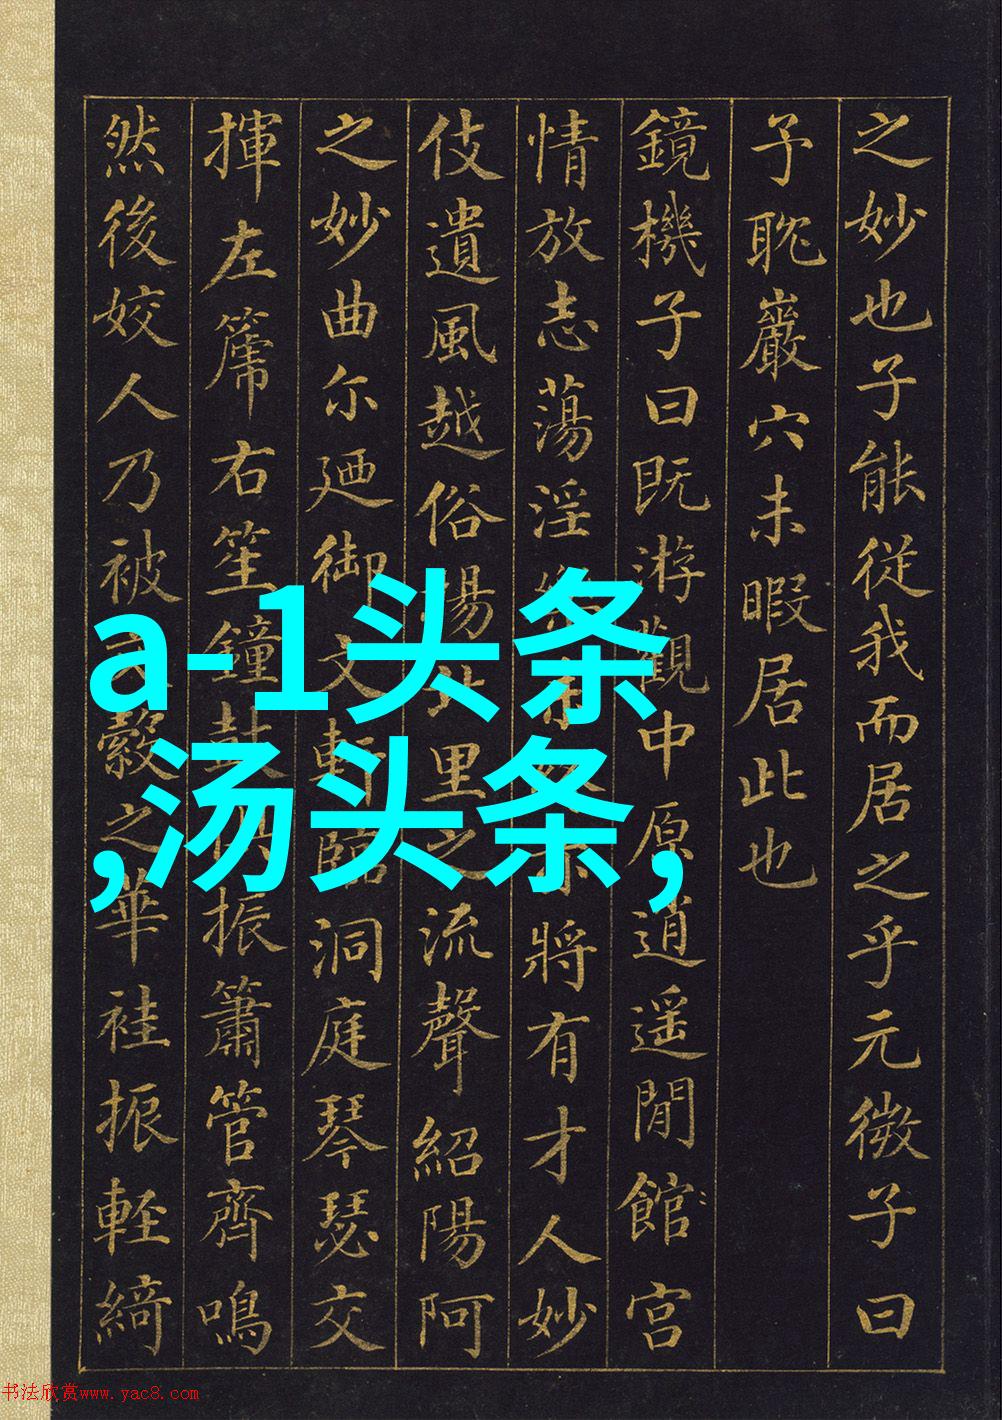 之妙也子能從我而居之乎元微子曰
予耽巖穴未暇居此也
鏡機子曰既游觀中原逍遥閒館宫
情放志蕩淫將有才人妙
伎遺風越俗揚北里之流聲紹陽阿
之妙曲尓廼御文軒臨洞庭琴瑟交
揮左篪右笙鐘鼓振簫管齊鳴
然後姣人乃被縠之華袿振輕綺
a-1头条
,汤头条,
书法欣赏www.yac8.com